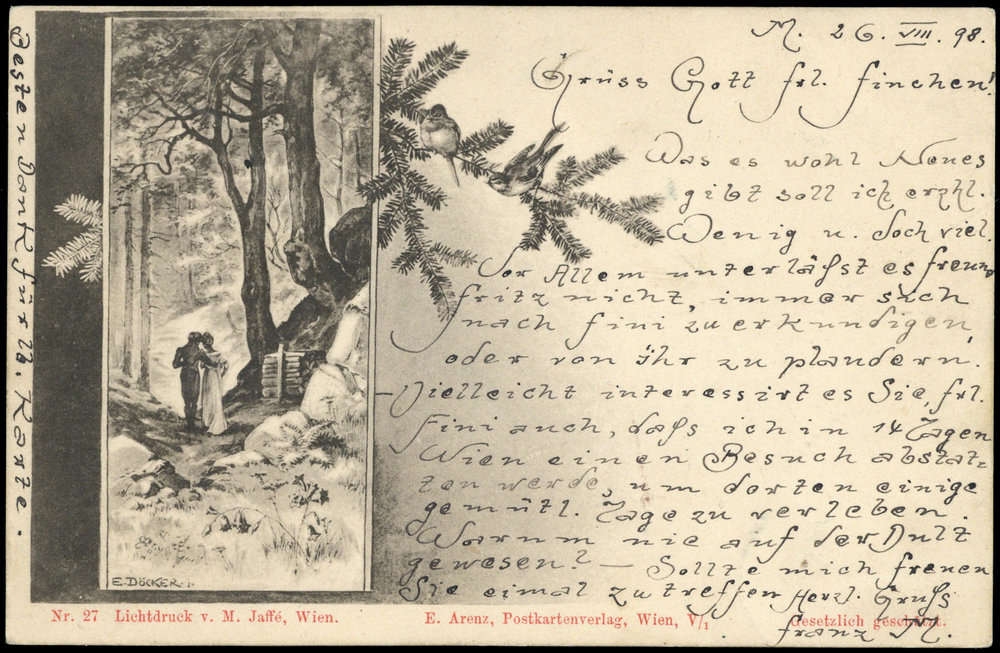 M. 26. VIII. 98.
Grüss Gott frl. Finchen!
Was es wohl Neues
gibt soll ich erzhl.
Wenig u. doch viel.
Vor Allem unterläßst es freund
Fritz nicht, immer sich
nach Fini zu erkundigen,
oder von ihr zu plaudern.
– Vielleicht interessirt es Sie, frl.
Fini auch, daßs ich in 14 Tagen
Wien einen Besuch abstat-
ten werde, um dorten einige
gemütl. Tage zu verleben.
Warum nie auf der Dult
gewesen? – Sollte mich freuen
Sie eimal zu treffen Herzl. Gruß
Franz M.
Besten Dank für lb. Karte.
E. DÖCKER
Nr. 27 Lichtdruck v. M. Jaffé, Wien.
E. Arenz, Postkartenverlag, Wien, V/1
Gesetzlich geschützt.